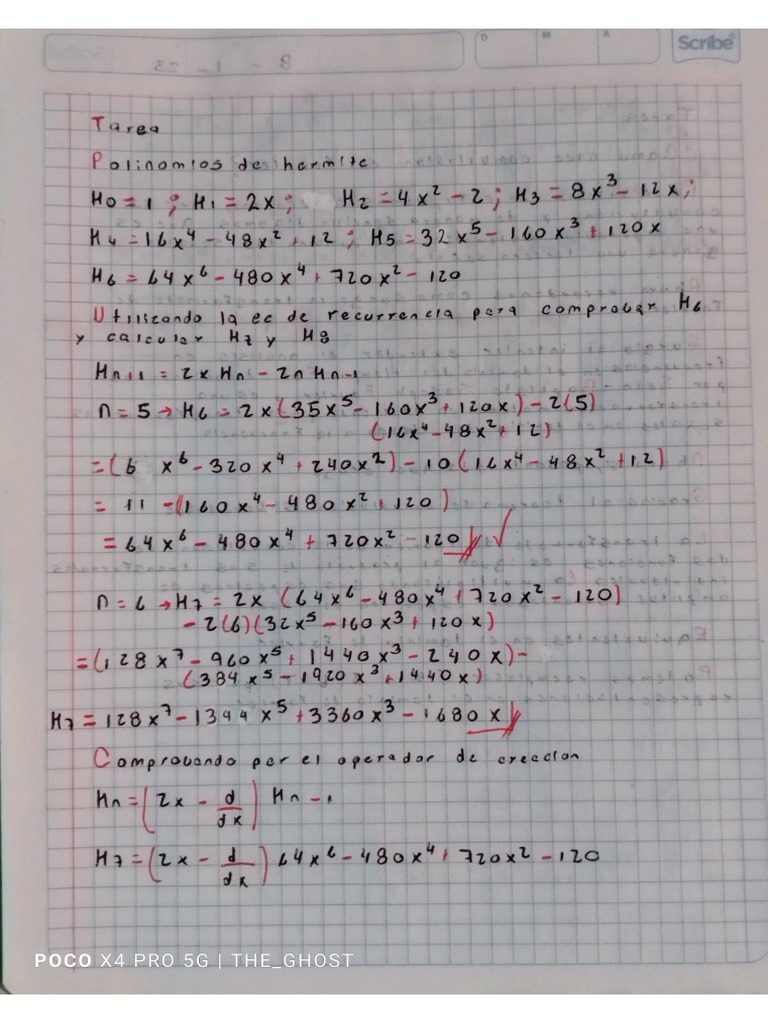 D M A Scribe
8 - 1 - 23
Tarea
Polinomios de hermite
H0 = 1 ; H1 = 2x ; H2 = 4x² - 2 ; H3 = 8x³ - 12x ;
H4 = 16x⁴ - 48x² + 12 ; H5 = 32x⁵ - 160x³ + 120x
H6 = 64x⁶ - 480x⁴ + 720x² - 120
Utilizando la ec de recurrencia para comprobar H6
y calcular H7 y H8
Hn+1 = 2x Hn - 2n Hn-1
n = 5 → H6 = 2x(35x⁵ - 160x³ + 120x) - 2(5)
(16x⁴ - 48x² + 12)
= (6 x⁶ - 320x⁴ + 240x²) - 10(16x⁴ - 48x² + 12)
= 11 - (160x⁴ - 480x² + 120)
= 64x⁶ - 480x⁴ + 720x² - 120 // ✓
n = 6 → H7 = 2x (64x⁶ - 480x⁴ + 720x² - 120)
- 2(6)(32x⁵ - 160x³ + 120x)
= (128x⁷ - 960x⁵ + 1440x³ - 240x) -
(384x⁵ - 1920x³ + 1440x)
H7 = 128x⁷ - 1344x⁵ + 3360x³ - 1680x //
Comprobando por el operador de creacion
Hn = (2x - d/dx) Hn-1
H7 = (2x - d/dx) 64x⁶ - 480x⁴ + 720x² - 120
POCO X4 PRO 5G | THE_GHOST